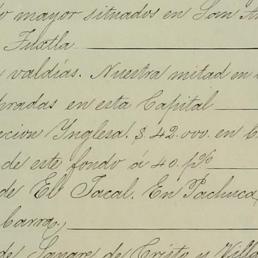 o mayor situados en San A
Tuxtla
valdías. Nuestra mitad en
bradas en esta Capital
cion Ynglesa, $ 42.000. en b
de este fondo á 40. p%
de El Jacal. En Pachuca,
barra,
de Sangre de Cristo y Villa